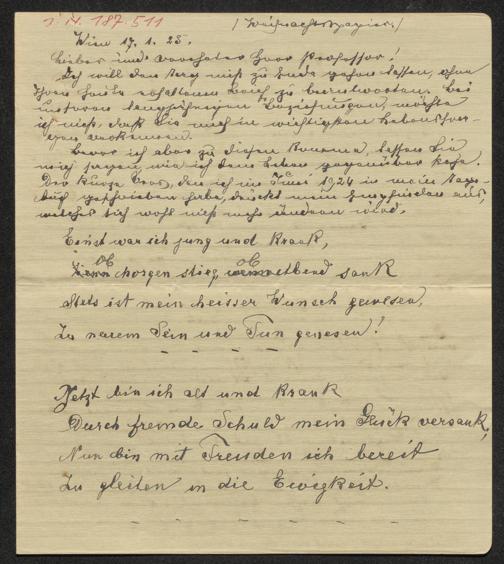 I.N. 187.511
/Weihnachtspapier./
Wien 17. 1. 25.
Lieber und verehrter Herr Professor!
Ich will den Tag nicht zu Ende gehen lassen, ohne
Ihren heute erhaltenen Brief zu beantworten. Bei
unseren langjährigen Beziehungen, möchte
ich nicht, daß Sie mich in wichtigen Lebensfra-
gen verkennen.
Bevor ich aber zu diesen komme, lassen Sie
mich sagen, wie ich dem Leben gegenüber stehe.
Der kurze Vers, den ich im Juni 1924 in mein Tage-
buch geschrieben habe, drückt mein Empfinden aus,
welches sich wohl nicht mehr ändern wird.
Einst war ich jung und krank,
ob morgen stieg, ob Abend sank
Stets ist mein heisser Wunsch gewesen,
Zu neuem Sein und Tun genesen!
Jetzt bin ich alt und krank
Durch fremde Schuld mein Glück versank,
Nun bin mit Freuden ich bereit
Zu gleiten in die Ewigkeit.